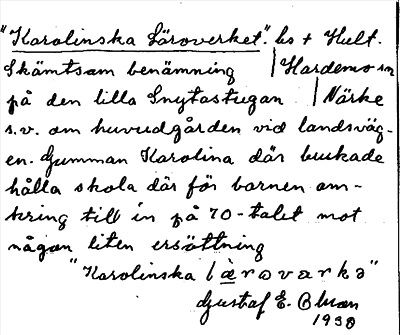 "Karolinska Läroverket". bs + Hult.
Skämtsam benämning | Hardemo sn
på den lilla Snytastugan | Närke
s.v. om huvudgården vid landsväg-
en. Gumman Karolina där brukade
hålla skola där för barnen om-
kring till in på 70-talet mot
någon liten ersättning
"Karolinska lärovarkə"
Gustaf E. Olsson
1930